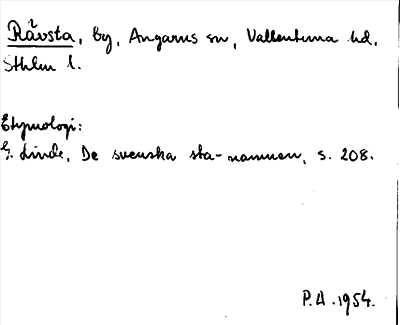 Råvsta, by, Angarns sn, Vallentuna hd,
Sthlm l.
Etymologi:
G. Linde, De svenska sta-namnen, s. 208.
P.A. 1954.